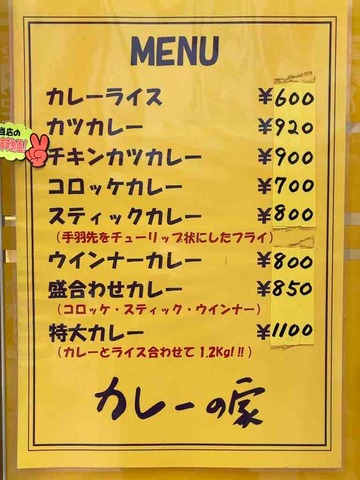 MENU
カレーライス ¥600
カツカレー ¥920
当店の
チキンカツカレー ¥900
コロッケカレー ¥700
スティックカレー ¥800
(手羽先をチューリップ状にしたフライ)
ウインナーカレー ¥800
盛合わせカレー ¥850
(コロッケ・スティック・ウインナー)
特大カレー ¥1100
(カレーとライス合わせて1.2Kg!!)
カレーの家